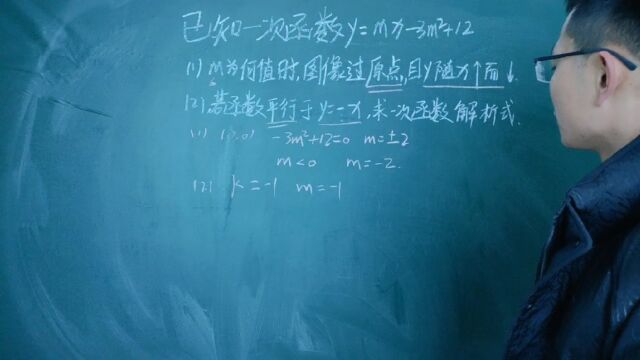 已知一次函数y=mx-3m²+12
(1) m为何值时,图像过原点,且y随x↑而↓.
(2) 若函数平行于y=-x,求一次函数解析式.
(1) (0,0) -3m²+12=0 m=±2
m<0 m=-2.
(2) k=-1 m=-1